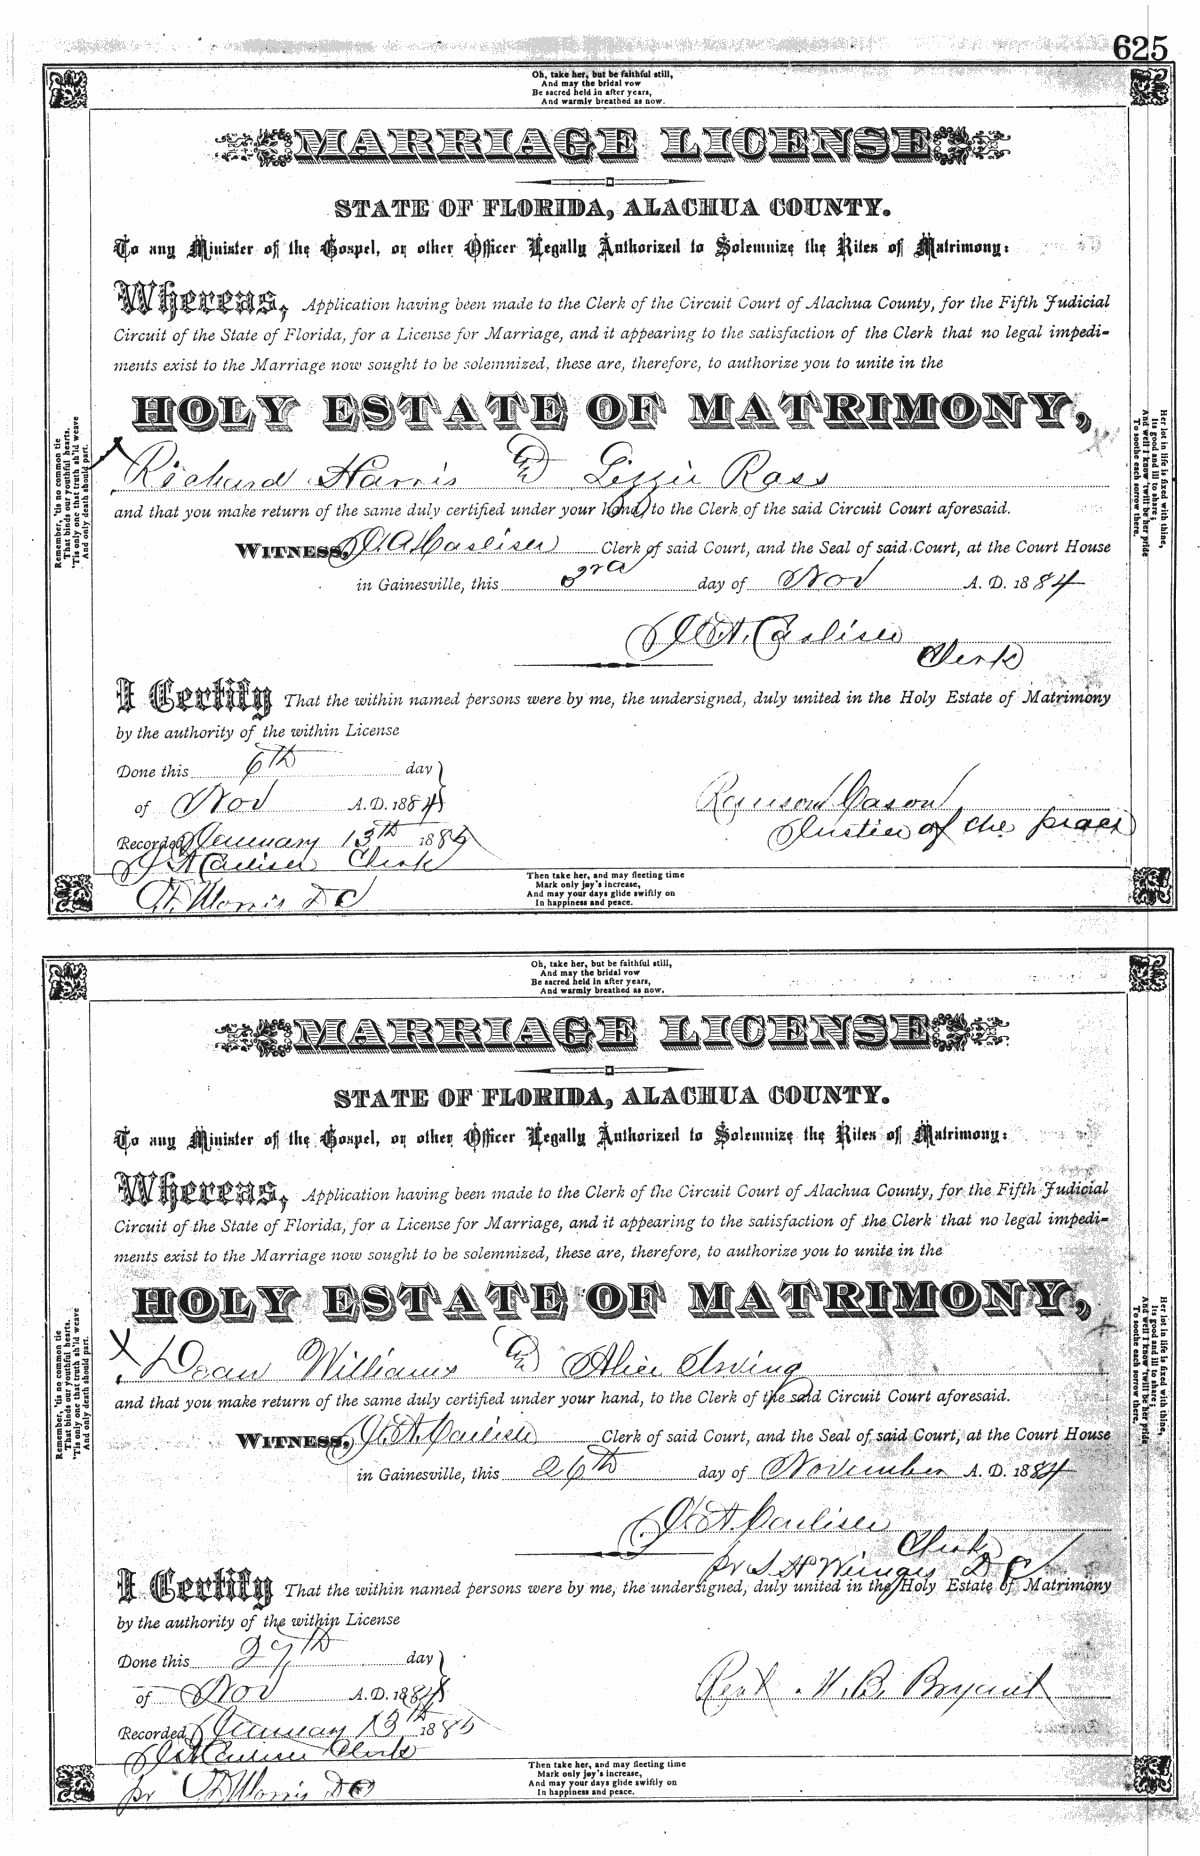 625
Oh, take her, but be faithful still,
And may the bridal vow
Be sacred held in after years,
And warmly breathed as now.
MARRIAGE LICENSE
STATE OF FLORIDA, ALACHUA COUNTY.
To any Minister of the Gospel, or other Officer Legally Authorized to Solemnize the Rites of Matrimony:
Whereas, Application having been made to the Clerk of the Circuit Court of Alachua County, for the Fifth Judicial
Circuit of the State of Florida, for a License for Marriage, and it appearing to the satisfaction of the Clerk that no legal impedi-
ments exist to the Marriage now sought to be solemnized, these are, therefore, to authorize you to unite in the
HOLY ESTATE OF MATRIMONY,
Richard Harris & Lizzie Ross
and that you make return of the same duly certified under your hand, to the Clerk of the said Circuit Court aforesaid.
WITNESS, J. A. Carlisle Clerk of said Court, and the Seal of said Court, at the Court House
in Gainesville, this 3rd day of Nov A. D. 1884
J. A. Carlisle
Clerk
I Certify That the within named persons were by me, the undersigned, duly united in the Holy Estate of Matrimony
by the authority of the within License
Done this 6th day
of Nov A. D. 1884
Ranson Cason
Justice of the peace
Recorded January 13th 1885
J A Carlisle Clerk
Morris D C
Then take her, and may fleeting time
Mark only joy's increase,
And may your days glide swiftly on
In happiness and peace.
Remember, 'tis no common tie
That binds our youthful hearts,
'Tis only one that truth sh'ld weave
And only death should part.
Her lot in life is fixed with thine,
Its good and ill to share;
And well I know 'twill be her pride
To soothe each sorrow there.
Oh, take her, but be faithful still,
And may the bridal vow
Be sacred held in after years,
And warmly breathed as now.
MARRIAGE LICENSE
STATE OF FLORIDA, ALACHUA COUNTY.
To any Minister of the Gospel, or other Officer Legally Authorized to Solemnize the Rites of Matrimony:
Whereas, Application having been made to the Clerk of the Circuit Court of Alachua County, for the Fifth Judicial
Circuit of the State of Florida, for a License for Marriage, and it appearing to the satisfaction of the Clerk that no legal impedi-
ments exist to the Marriage now sought to be solemnized, these are, therefore, to authorize you to unite in the
HOLY ESTATE OF MATRIMONY,
Dean Williams & Alice Irving
and that you make return of the same duly certified under your hand, to the Clerk of the said Circuit Court aforesaid.
WITNESS, J. A. Carlisle Clerk of said Court, and the Seal of said Court, at the Court House
in Gainesville, this 26th day of November A. D. 1884
J. A. Carlisle
Clerk
pr S H Wienges D C
I Certify That the within named persons were by me, the undersigned, duly united in the Holy Estate of Matrimony
by the authority of the within License
Done this 27th day
of Nov A. D. 1884
Revd. W. B. Bryant
Recorded January 13th 1885
J A Carlisle Clerk
pr Morris D C
Then take her, and may fleeting time
Mark only joy's increase,
And may your days glide swiftly on
In happiness and peace.
Remember, 'tis no common tie
That binds our youthful hearts,
'Tis only one that truth sh'ld weave
And only death should part.
Her lot in life is fixed with thine,
Its good and ill to share;
And well I know 'twill be her pride
To soothe each sorrow there.